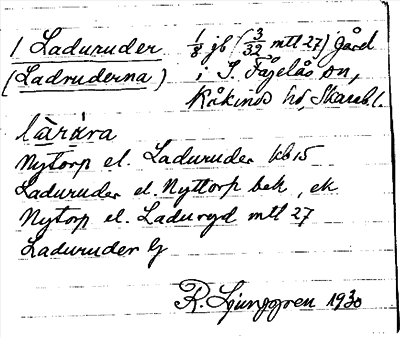 1 Laduruder 1/8 jb (3/32 mtl 27) gård
(Ladruderna) i S. Fågelås sn,
Kåkinds hd, Skarab. l.
làrúra
Nytorp el. Laduruder kb 15
Laduruder el. Nyttorp bek, ek
Nytorp el. Laduryd mtl 27
Laduruder
R. Ljunggren 1930